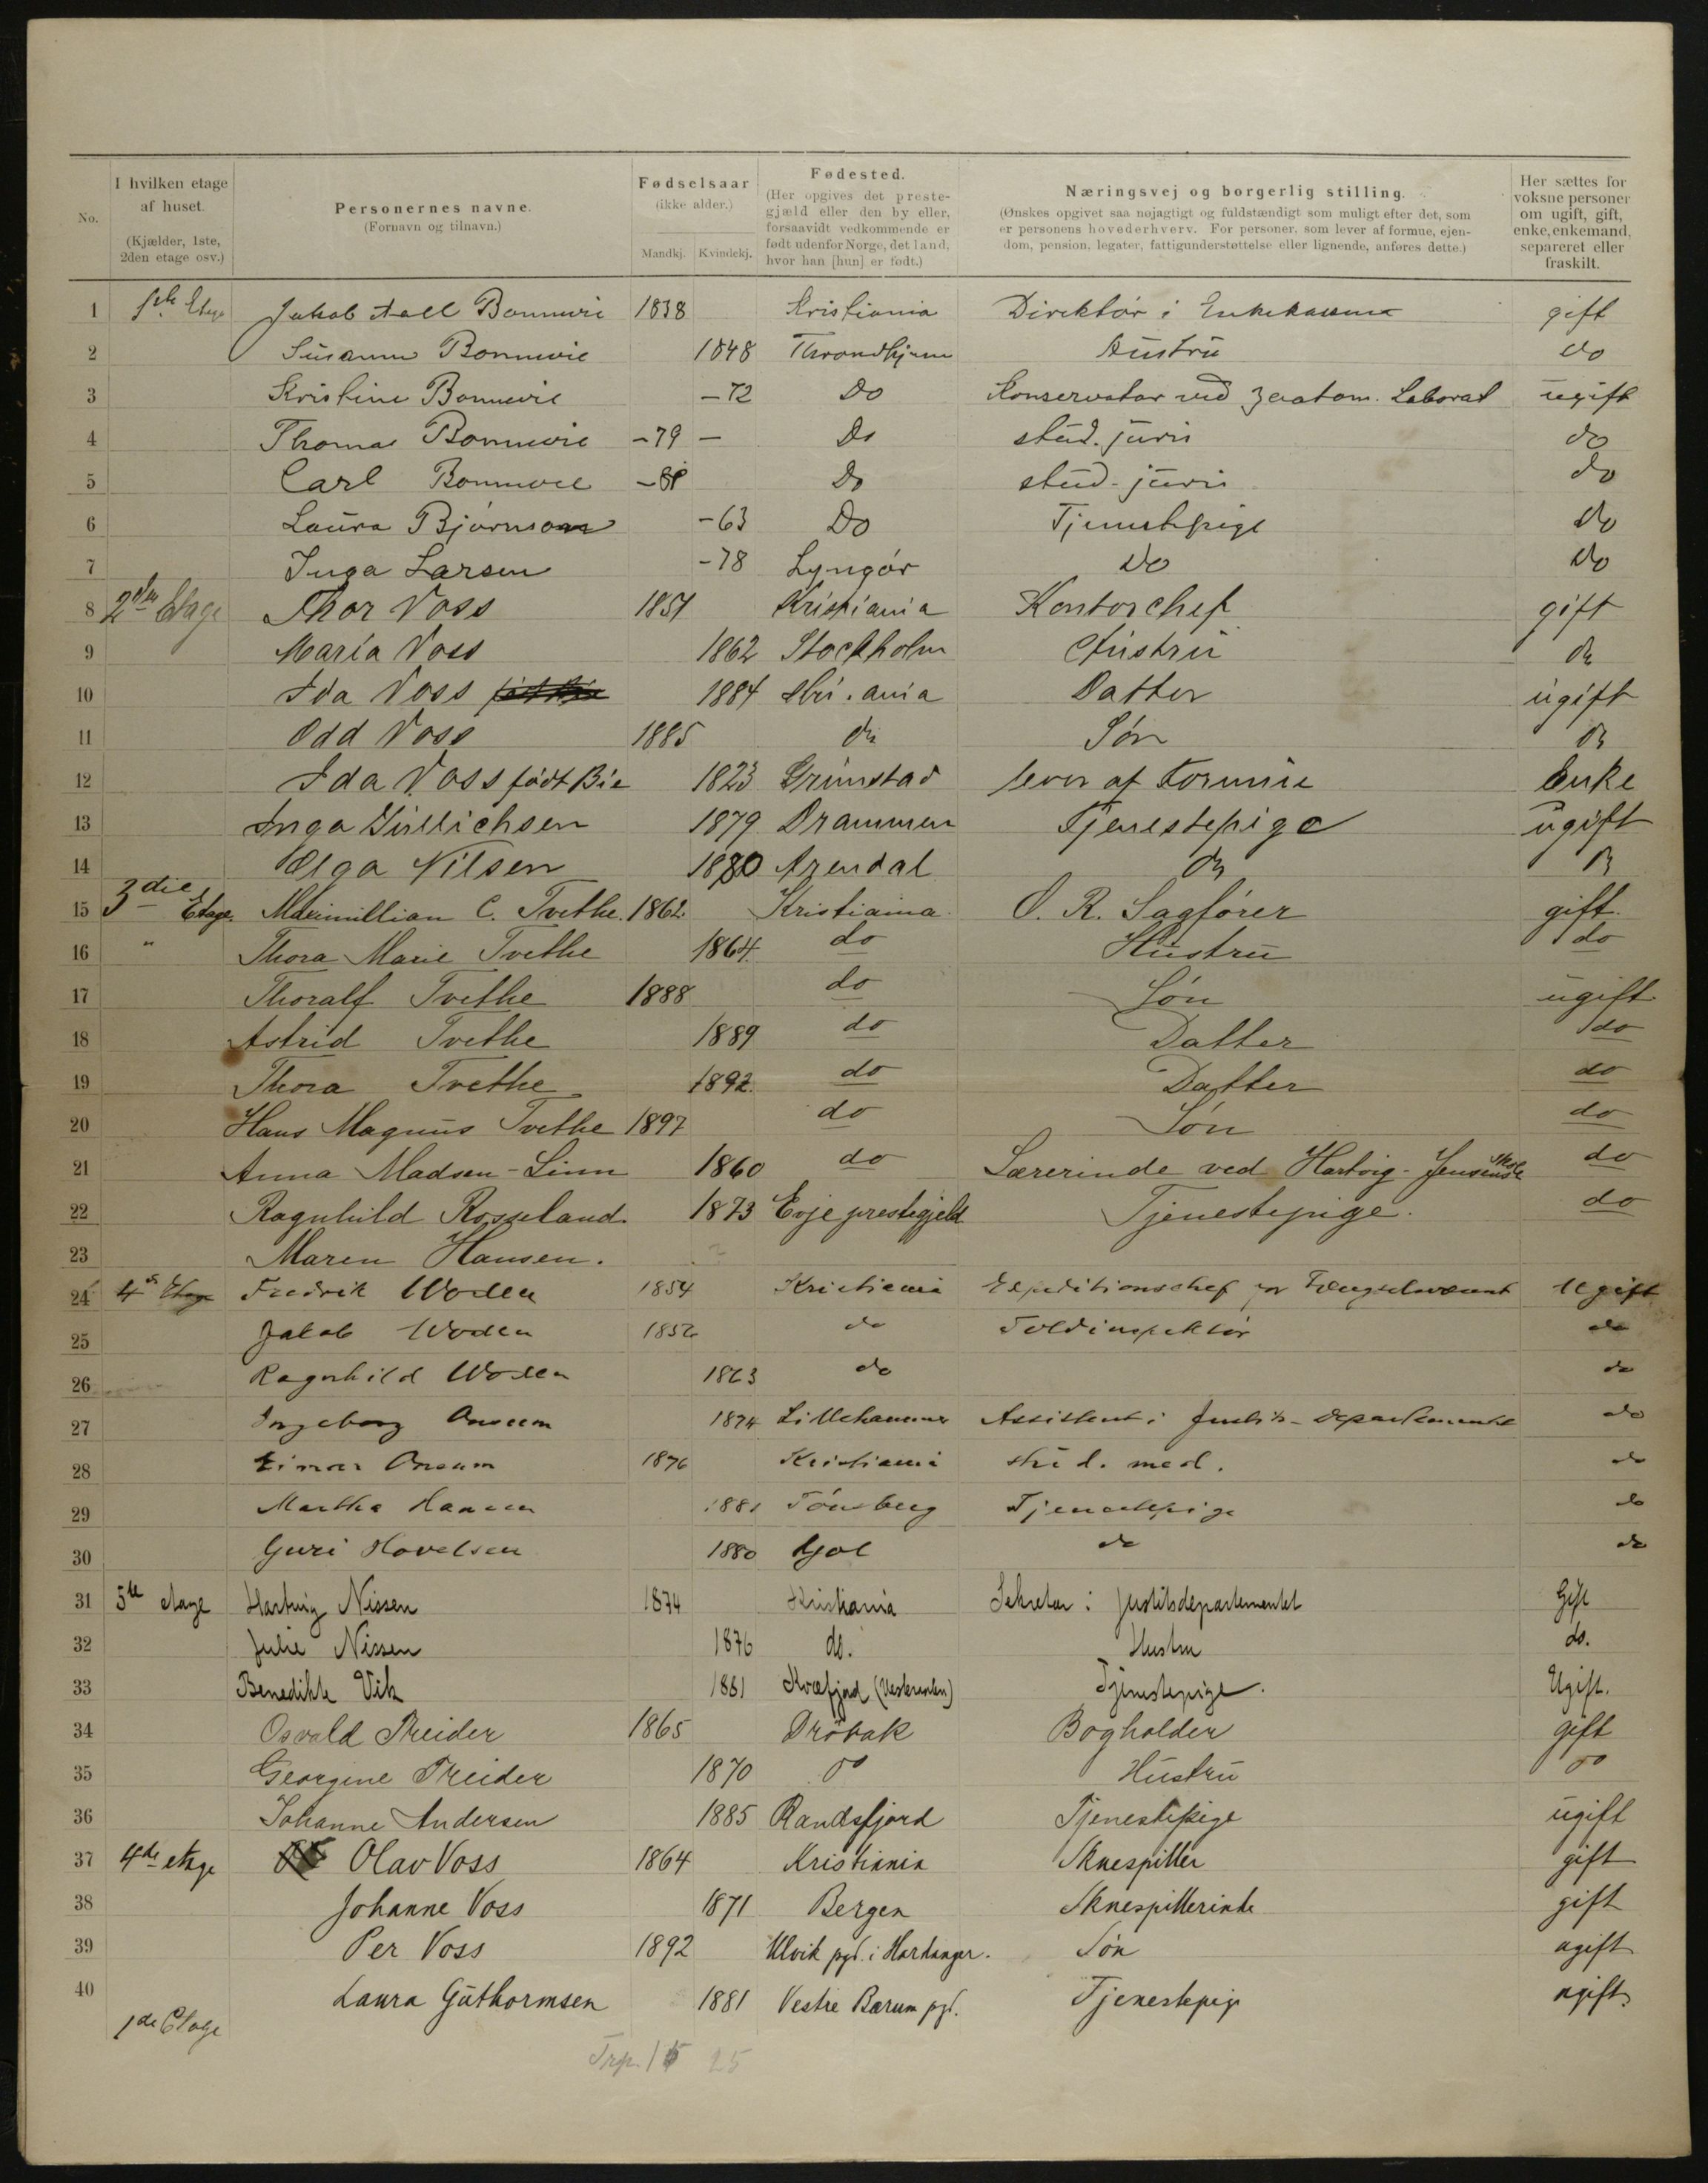 No.
I hvilken etage af huset. (Kjælder, 1ste, 2den etage osv.)
Personernes navne. (Fornavn og tilnavn.)
Fødselsaar (ikke alder.) Mandkj. Kvindekj.
Fødested. (Her opgives det prestegjæld eller den by eller, forsaavidt vedkommende er født udenfor Norge, det land, hvor han [hun] er født.)
Næringsvej og borgerlig stilling. (Ønskes opgivet saa nøjagtigt og fuldstændigt som muligt efter det, som er personens hovederhverv. For personer, som lever af formue, ejendom, pension, legater, fattigunderstøttelse eller lignende, anføres dette.)
Her sættes for voksne personer om ugift, gift, enke, enkemand, separeret eller fraskilt.
1 1ste Etage Jakob Aall Bonnevie 1838 Kristiania Direktør i Enkekassen gift
2 Susanne Bonnevie 1848 Throndhjem Hustru do
3 Kristine Bonnevie -72 Do Konservator ved zootom. Laborat ugift
4 Thomas Bonnevie -79 - Do stud. juris do
5 Carl Bonnevie Do stud. juris do
6 Laura Bjørnson -63 Do Tjenestepige do
7 Inga Larsen -78 Lyngør Do do
8 2den Etage Thor Voss 1857 Kristiania Kontorchef gift
9 Maria Voss 1862 Stockholm Hustru do
10 Ida Voss 1884 Kri.ania Datter ugift
11 Odd Voss 1885 do Søn do
12 Ida Voss født Bie 1823 Grimstad lever af Formue Enke
13 Inga Gullichsen 1879 Drammen Tjenestepige ugift
14 Olga Nilsen 1880 Arendal do do
15 3die Etage. Maximillian C. Tvethe. 1862. Kristiania. O. R. Sagfører gift.
16 " Thora Marie Tvethe 1864. do Hustru do
17 Thoralf Tvethe 1888 do Søn ugift
18 Astrid Tvethe 1889 do Datter do
19 Thora Tvethe 1892. do Datter do
20 Hans Magnus Tvethe 1897 do Søn do
21 Anna Madsen-Linn 1860 do Lærerinde ved Hartvig-Jensens Skole do
22 Ragnhild Rosseland. 1873 Evje prestegjeld Tjenestepige. do
23 Maren Hansen.
24 4de Etage Fredrik Woxen 1854 Kristiania Expeditionschef for Fængselsvæsent Ugift
25 Jakob Woxen 1856 do Toldinspektør do
26 Ragnhild Woxen 1863 do do
27 Ingeborg Onsum 1874 Lillehammer Assistent i Justits-Departementet do
28 Einar Onsum 1876 Kristiania stud. med. do
29 Martha Hansen 1881 Tønsberg Tjenestepige do
30 Guri Hovelsen 1880 Gol do do
31 5te etage Hartvig Nissen 1874 Kristiania Sekretær i Justitsdepartementet Gift
32 Julie Nissen 1876 do. Hustru do.
33 Benedikte Vik 1881 Kvæfjord (Vesteraalen) Tjenestepige. Ugift.
34 Osvald Treider 1865 Drøbak Bogholder gift
35 Georgine Treider 1870 do Hustru do
36 Johanne Andersen 1885 Randsfjord Tjenestepige ugift
37 4de etage Olav Voss 1864 Kristiania Skuespiller gift
38 Johanne Voss 1871 Bergen Skuespillerinde gift
39 Per Voss 1892 Ulvik pgd. i Hardanger. Søn ugift
40 Laura Guthormsen 1881 Vestre Bærum pgd. Tjenestepige ugift
1de Etage
25